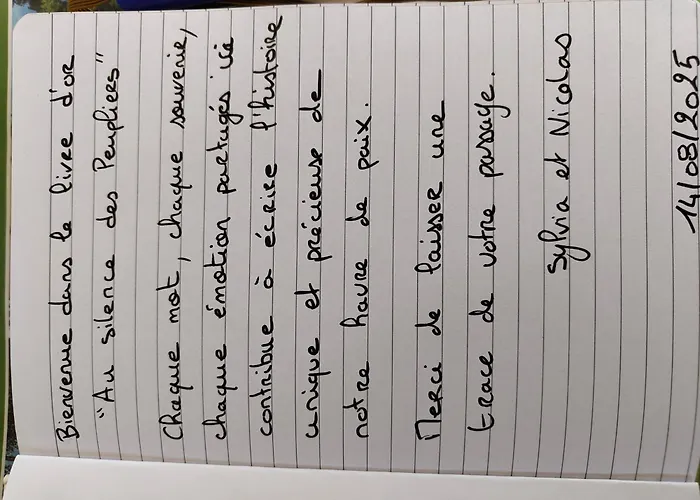 Bienvenue dans le livre d'or
"Au silence des Peupliers"
Chaque mot, chaque souvenir,
chaque émotion partagés ici
contribue à écrire l'histoire
unique et précieuse de
notre havre de paix.
Merci de laisser une
trace de votre passage.
Sylvia et Nicolas
14/08/2025